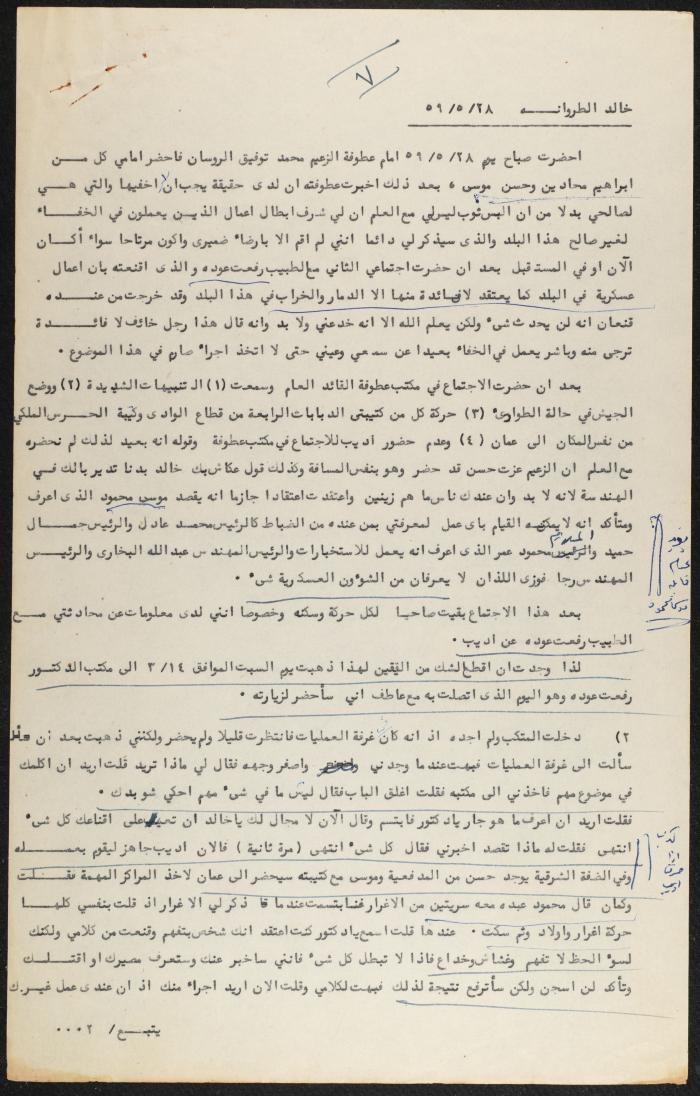 ٧
خالد الطروانـــه ٥٩/٥/٢٨
احضرت صباح يوم ٥٩/٥/٢٨ امام عطوفة الزعيم محمد توفيق الروسان فاحضر امامي كل مــن
ابراهيم محادين وحسن موسى ، بعد ذلك اخبرت عطوفته ان لدى حقيقة يجب ان لا اخفيها والتي هــي
لصالحي بدلا من ان البس ثوب ليس لي مع العلم ان لي شرف ابطال اعمال الذيــن يعملون في الخفــاء
لغير صالح هذا البلد والذى سيذكر لي دائما انني لم اقم الا بارضاء ضميرى واكون مرتاحا سواء أكــان
الآن او في المستقبل بعد ان حضرت اجتماعي الثاني مع الطبيب رفعت عوده والذى اقنعته بان اعمال
عسكرية في البلد كما يعتقد لا فائدة منها الا الدمار والخراب في هذا البلد وقد خرجت من عنــــده
قنعان انه لن يحدث شيء ولكن يعلم الله الا انه خدعني ولا بد وانه قال هذا رجل خائف لا فائــدة
ترجى منه وباشر يعمل في الخفاء بعيدا عن سمعي وعيني حتى لا اتخذ اجراء صارم في هذا الموضوع ٠
بعد ان حضرت الاجتماع في مكتب عطوفة القائد العام وسمعت (١) التنبيهات الشديدة (٢) ووضع
الجيش في حالة الطوارىء (٣) حركة كل من كتيبتي الدبابات الرابعة من قطاع الوادى وكتيبة الحــرس الملكي
من نفس المكان الى عمان (٤) وعدم حضور اديب للاجتماع في مكتب عطوفة وقوله انه بعيد لذلك لم نحضره
مع العلم ان الزعيم عزت حسن قد حضر وهو بنفس المسافة وكذلك قول عكاش بك خالد بدنا تدير بالك فــي
الهندسة لانه لا بد وان عندك ناس ما هم زينين واعتقدت اعتقادا جازما انه يقصد موسى محمود الذى اعرف
ومتأكد انه لا يمكنه القيام باى عمل لمعرفتي بمن عنده من الضباط كالرئيس محمد عادل والرئيس جمــال
حميد والملازم محمود عمر الذى اعرف انه يعمل للاستخبارات والرئيس المهندس عبدالله البخارى والرئيــس
المهندس رجا فوزى اللذان لا يعرفان من الشؤون العسكرية شيء ٠
بعد هذا الاجتماع بقيت صاحيا لكل حركة وسكنه وخصوصا انني لدى معلومات عن محادثتي مــع
الطبيب رفعت عوده عن اديب ٠
لذا وجدت ان اقطع الشك من اليقين لهذا ذهبت يوم السبت الموافق ٣/١٤ الى مكتب الدكتــور
رفعت عوده وهو اليوم الذى اتصلت به مع عاطف اني سأحضر لزيارته ٠
٢) دخلت المتكب ولم اجده اذ انه كان غرفة العمليات فانتظرت قليلا ولم يحضر ولكنني ذهبت بعد ان
سألت الى غرفة العمليات فبهت عندما وجدني واصفر وجهه فقال لي ماذا تريد قلت اريد ان اكلمك
في موضوع مهم فاخذني الى مكتبه فقلت اغلق الباب فقال ليش ما في شيء مهم احكي شو بدك ٠
فقلت اريد ان اعرف ما هو جار يا دكتور فابتسم وقال الآن لا مجال لك يا خالد ان على اقناعك كل شيء
انتهى فقلت له ماذا تقصد اخبرني فقال كل شيء انتهى (مرة ثانية) فالان اديب جاهز ليقوم بعمــله
وفي الضفة الشرقية يوجد حسن من المدفعية وموسى مع كتيبته سيحضر الى عمان لاخذ المراكز المهمة فقــلت
وكمان قال محمود عبده معه سريتين من الاغرار فنا بتسمت عندما قا ذكر لي الاغرار اذ قلت بنفسي كلهــا
حركة اغرار واولاد وثم سكت ٠ عندها قلت اسمع يا دكتور كنت اعتقد انك شخص بتفهم وقنعت من كلامي ولكنك
لسوء الحظ لا تفهم وغشاش وخداع فاذا لا تبطل كل شيء فانني ساخبر عنك وستعرف مصيرك او اقتــلك
وتأكد لن اسجن ولكن سأترفع نتيجة لذلك فبهت لكلامي وقلت الان اريد اجراء منك اذ ان عندى عمل غيــرك
يتبــع/ ٠٠٠٢